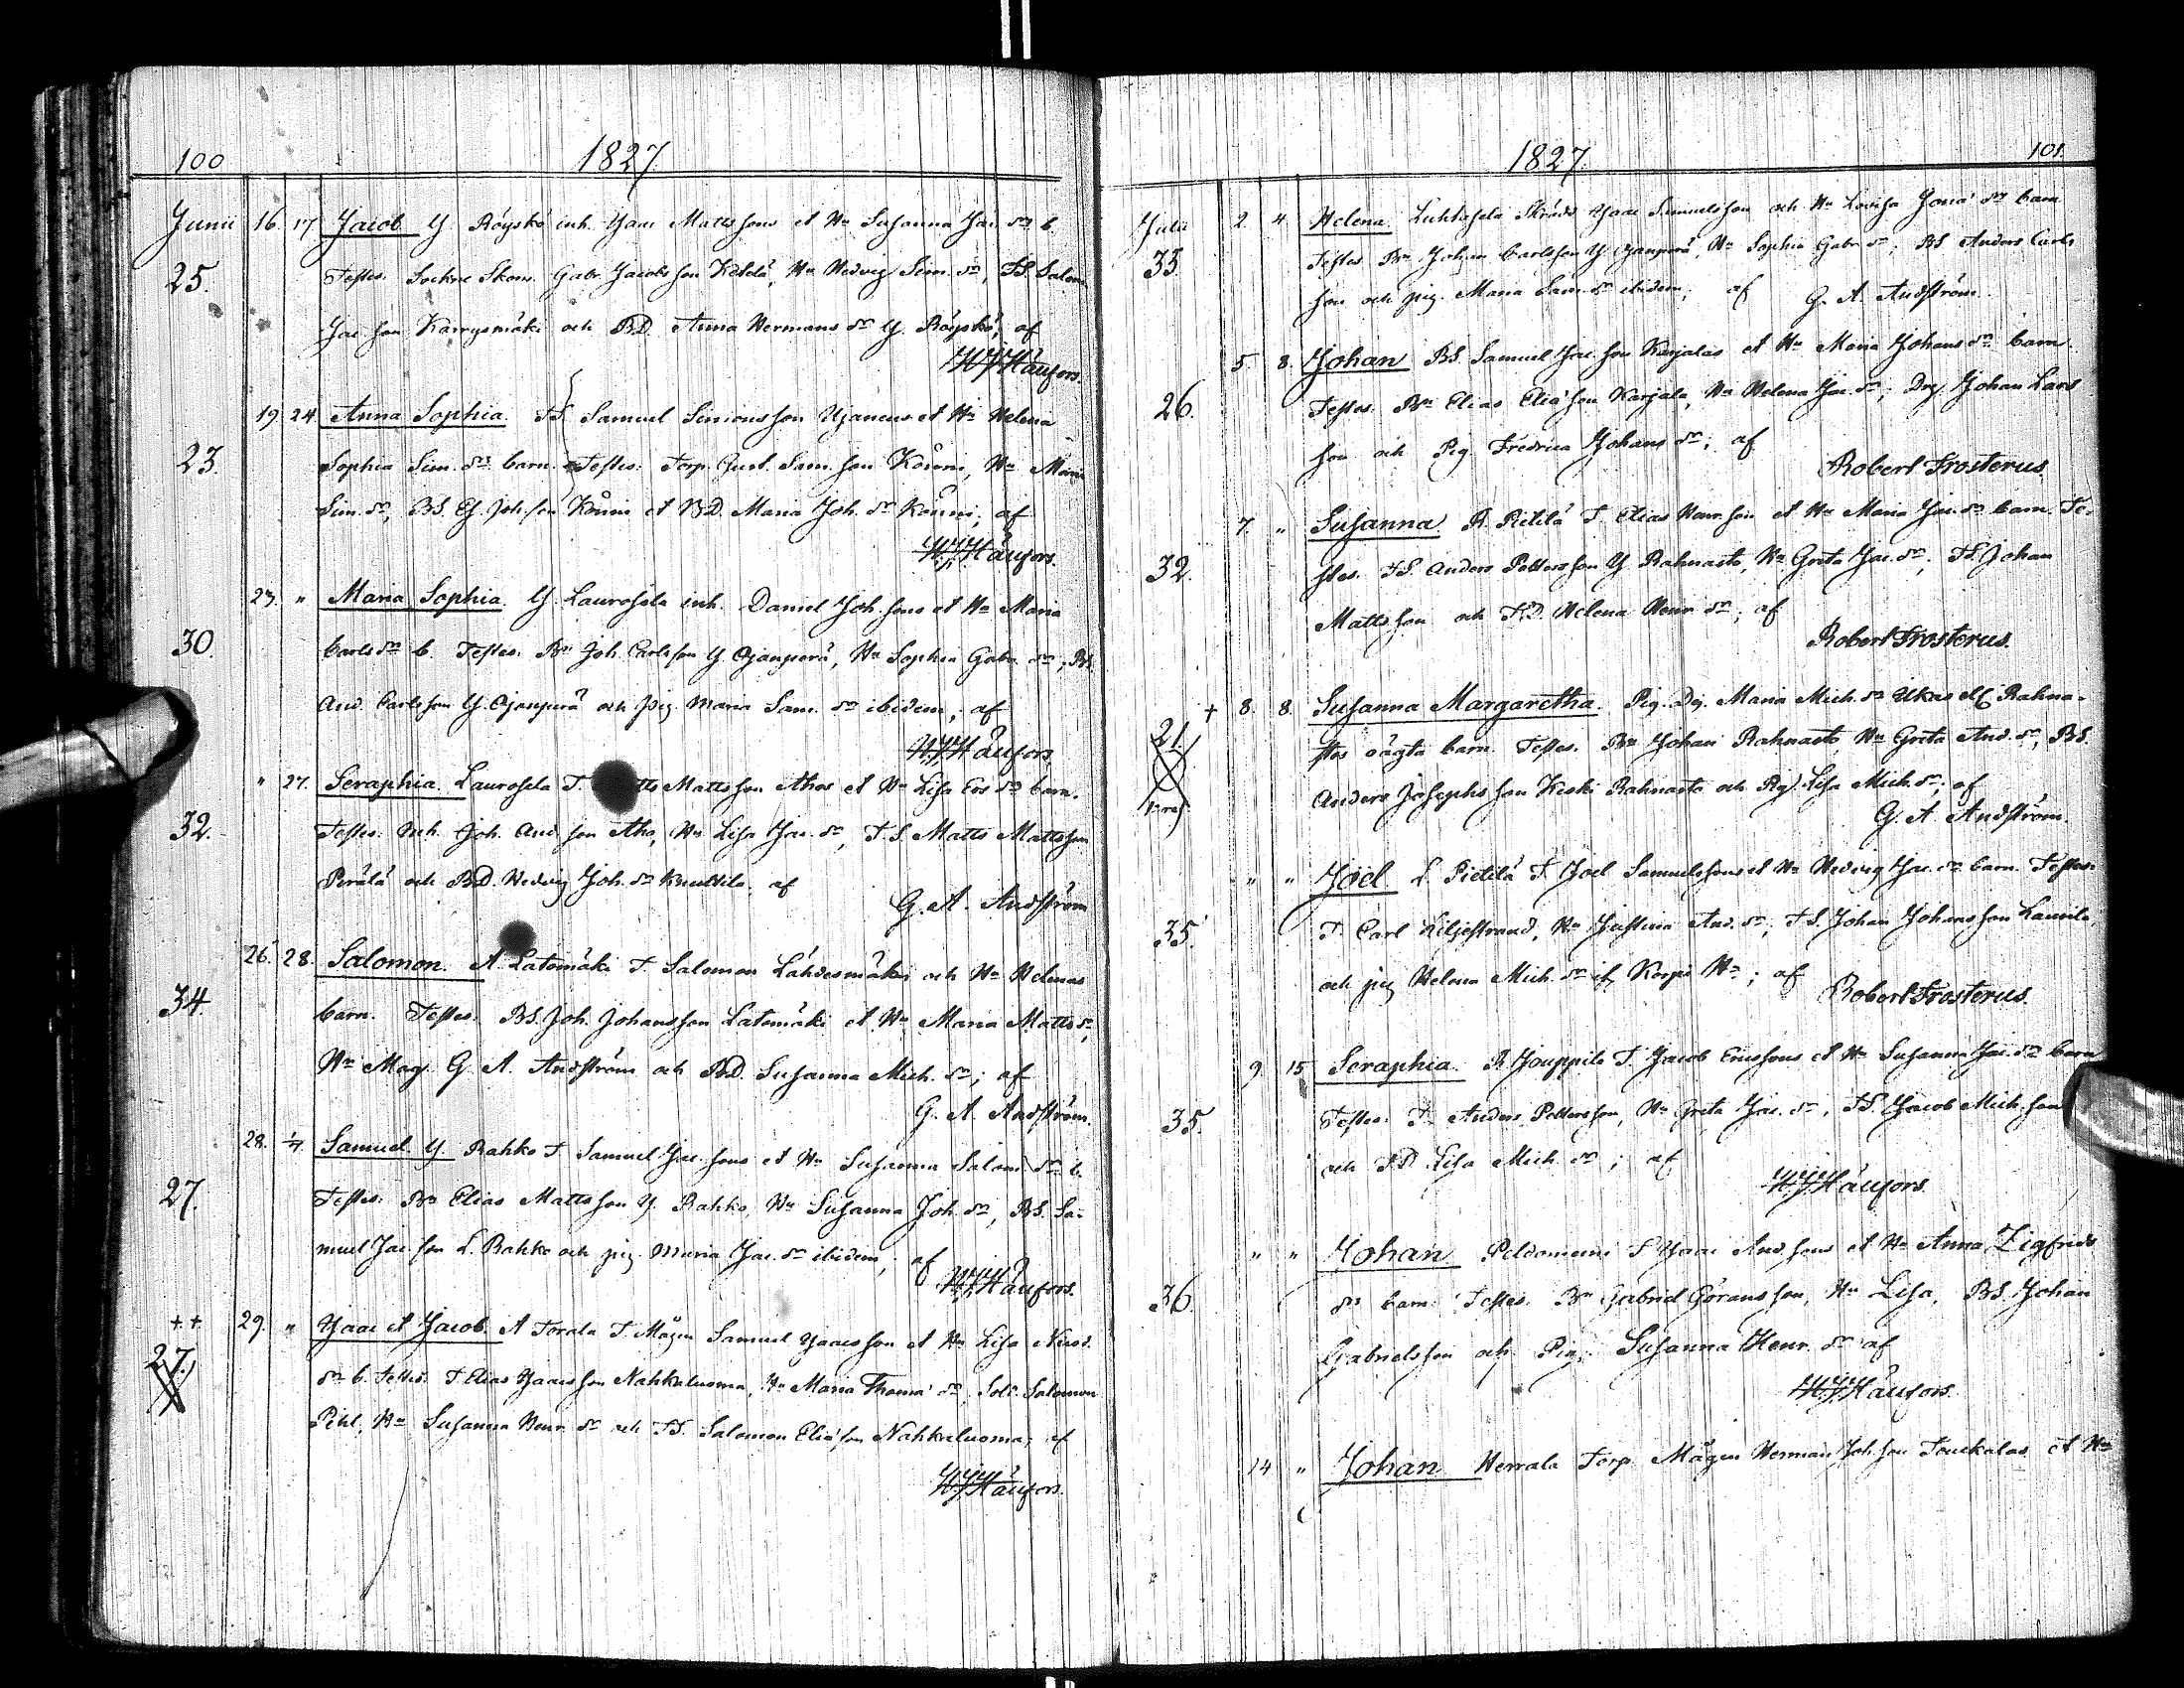 100 1827
Junii 16. 17 Jacob Y. Röyskö inh. Isaac Mattssons et Hu Susanna Jac. dr b.
25. Testes. Sockne Skom. Gabr. Jacobsson Ketola, Hu Hedvig Sim. dr, TS. Salom.
Jac. son Karrysmäki och BD. Anna Hermans dr Y. Röyskö; af
HJHaufors.
19. 24. Anna Sophia. TS. Samuel Simonsson et Hu Helena
23. Sophia Sim. drs barn. Testes. Torp. Gust. Sam. son Könni, Hu Maria
Sim. dr, BS. Joh. son Könni et BD. Maria Joh. dr Könni; af
HJHaufors.
23. " Maria Sophia. Y. Laurosela inh. Daniel Joh. sons et Hu Maria
30. Carls dr b. Testes. Bn Joh. Carlsson Y. Ojanperä, Hu Sophia Gabr. dr, BS.
And. Carlsson Y. Ojanperä och pig. Maria Sam. dr ibidem; af
HJHaufors.
" 27. Seraphia. Laurosela T. Mattsson et Hu Lisa Ers dr barn.
32. Testes. Inh. Joh. And. son Hu Lisa Jac. dr, T.S. Matts Mattsson
Perälä och BD. Hedvig Joh. dr af
G. A. Andström
26. 28. Salomon. A. Latomäki T. Salomon Lähdesmäkis och Hu Helenas
34. barn. Testes. BS. Joh. Johansson Latomäki et Hu Maria Matts dr,
Hr Mag. G. A. Andström och BD. Susanna Mich. dr; af
G. A. Andström.
28. 1/7 Samuel. Y. Rahko T. Samuel Jac. sons et Hu Susanna Salom. dr b.
27. Testes. Bn Elias Mattsson Y. Rahko, Hu Susanna Joh. dr, BS. Sa-
muel Jac. son L. Rahko och pig. Maria Jac. dr ibidem; af
HJHaufors.
++ 29. " Isaac et Jacob. A Torala T. Mågen Samuel Isaacsson et Hu Lisa
27. dr b. Testes. T. Elias Isaacsson Nahkaluoma, Hu Maria Thoma dr, Sold. Salomon
Pihl, Hu Susanna Henr. dr och TS. Salomon Eliæson Nahkaluoma; af
HJHaufors.
1827. 101.
Julii 2. 4. Helena. Luhtasela Skrädd. Isaac Samuelsson och Hu Lovisa Jona dr barn
35. Testes Bn Johan Carlsson Y Ojanperä, Hu Sophia Gabr. dr, BS Anders Carls
son och pig. Maria Sam. dr ibidem; af G. A. Andström.
5. 8. Johan BS. Samuel Jac. son Karjalas et Hu Maria Johans dr barn
26. Testes. Bn Elias Eliæson Karjala, Hu Helena Jac. dr; Drg. Johan Lars
son och Pig Fredrica Johans dr; af
Robert Frosterus.
7. " Susanna R. Pietilä T. Elias Henr. son et Hu Maria Jac. dr barn. Te-
32. stes. TS. Anders Pettersson Y Rahnasto, Hu Greta Jac. dr, TS. Johan
Mattsson och TD. Helena Henr. dr; af
Robert Frosterus.
+ 8. 8. Susanna Margaretha. Pig. Maria Mich. dr Rahna-
21. stos oägta barn. Testes. Bn Johan Rahnasto, Hu Greta And. dr, BS.
Anders Josephsson Keski Rahnasto och Pig Lisa Mich. dr; af
G. A Andström
" " Joel L. Pietilä T. Joel Samuelssons et Hu Hedvig Jac. dr barn. Testes.
35. T. Carl Liljestrand, Hu Justina And. dr; TS. Johan Johansson Laurila,
och pig Helena Mich. dr Korpi; af Robert Frosterus.
9 15 Seraphia. R Jouppila T. Jacob Ericssons et Hu Susanna Jac. dr barn
35. Testes. T. Anders Pettersson, Hu Greta Jac. dr, TS. Jacob Mich. son
och TD Lisa Mich dr; af
HJHaufors.
" " Johan Peldoniemi Isaac And. sons et Hu Anna Zigfrids
36. drs barn. Testes. Bn Gabriel Göransson, Hu Lisa, BS. Johan
Gabrielsson och Pig. Susanna Henr. dr af
HJHaufors.
14 " Johan Herrala Torp. Mågen Herman Joh. son Toukalas et Hu